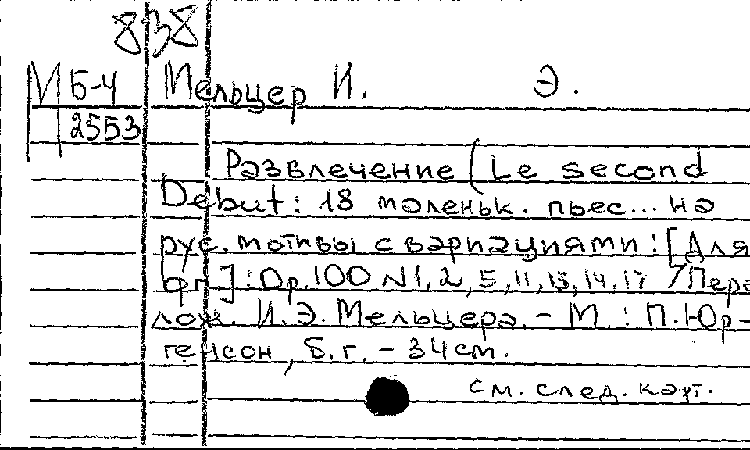 838
М Б-4 Мельцер И. Э.
2553
Развлечение (Le second
Debut: 18 маленьк. пьес... на
рус. мотивы с вариациями: [Для
фп]: Op. 100 N 1, 2, 5, 11, 13, 14, 17 / Пере
лож. И. Э. Мельцера. - М.: П. Юр-
генсон, б. г. - 34 см.
см. след. карт.